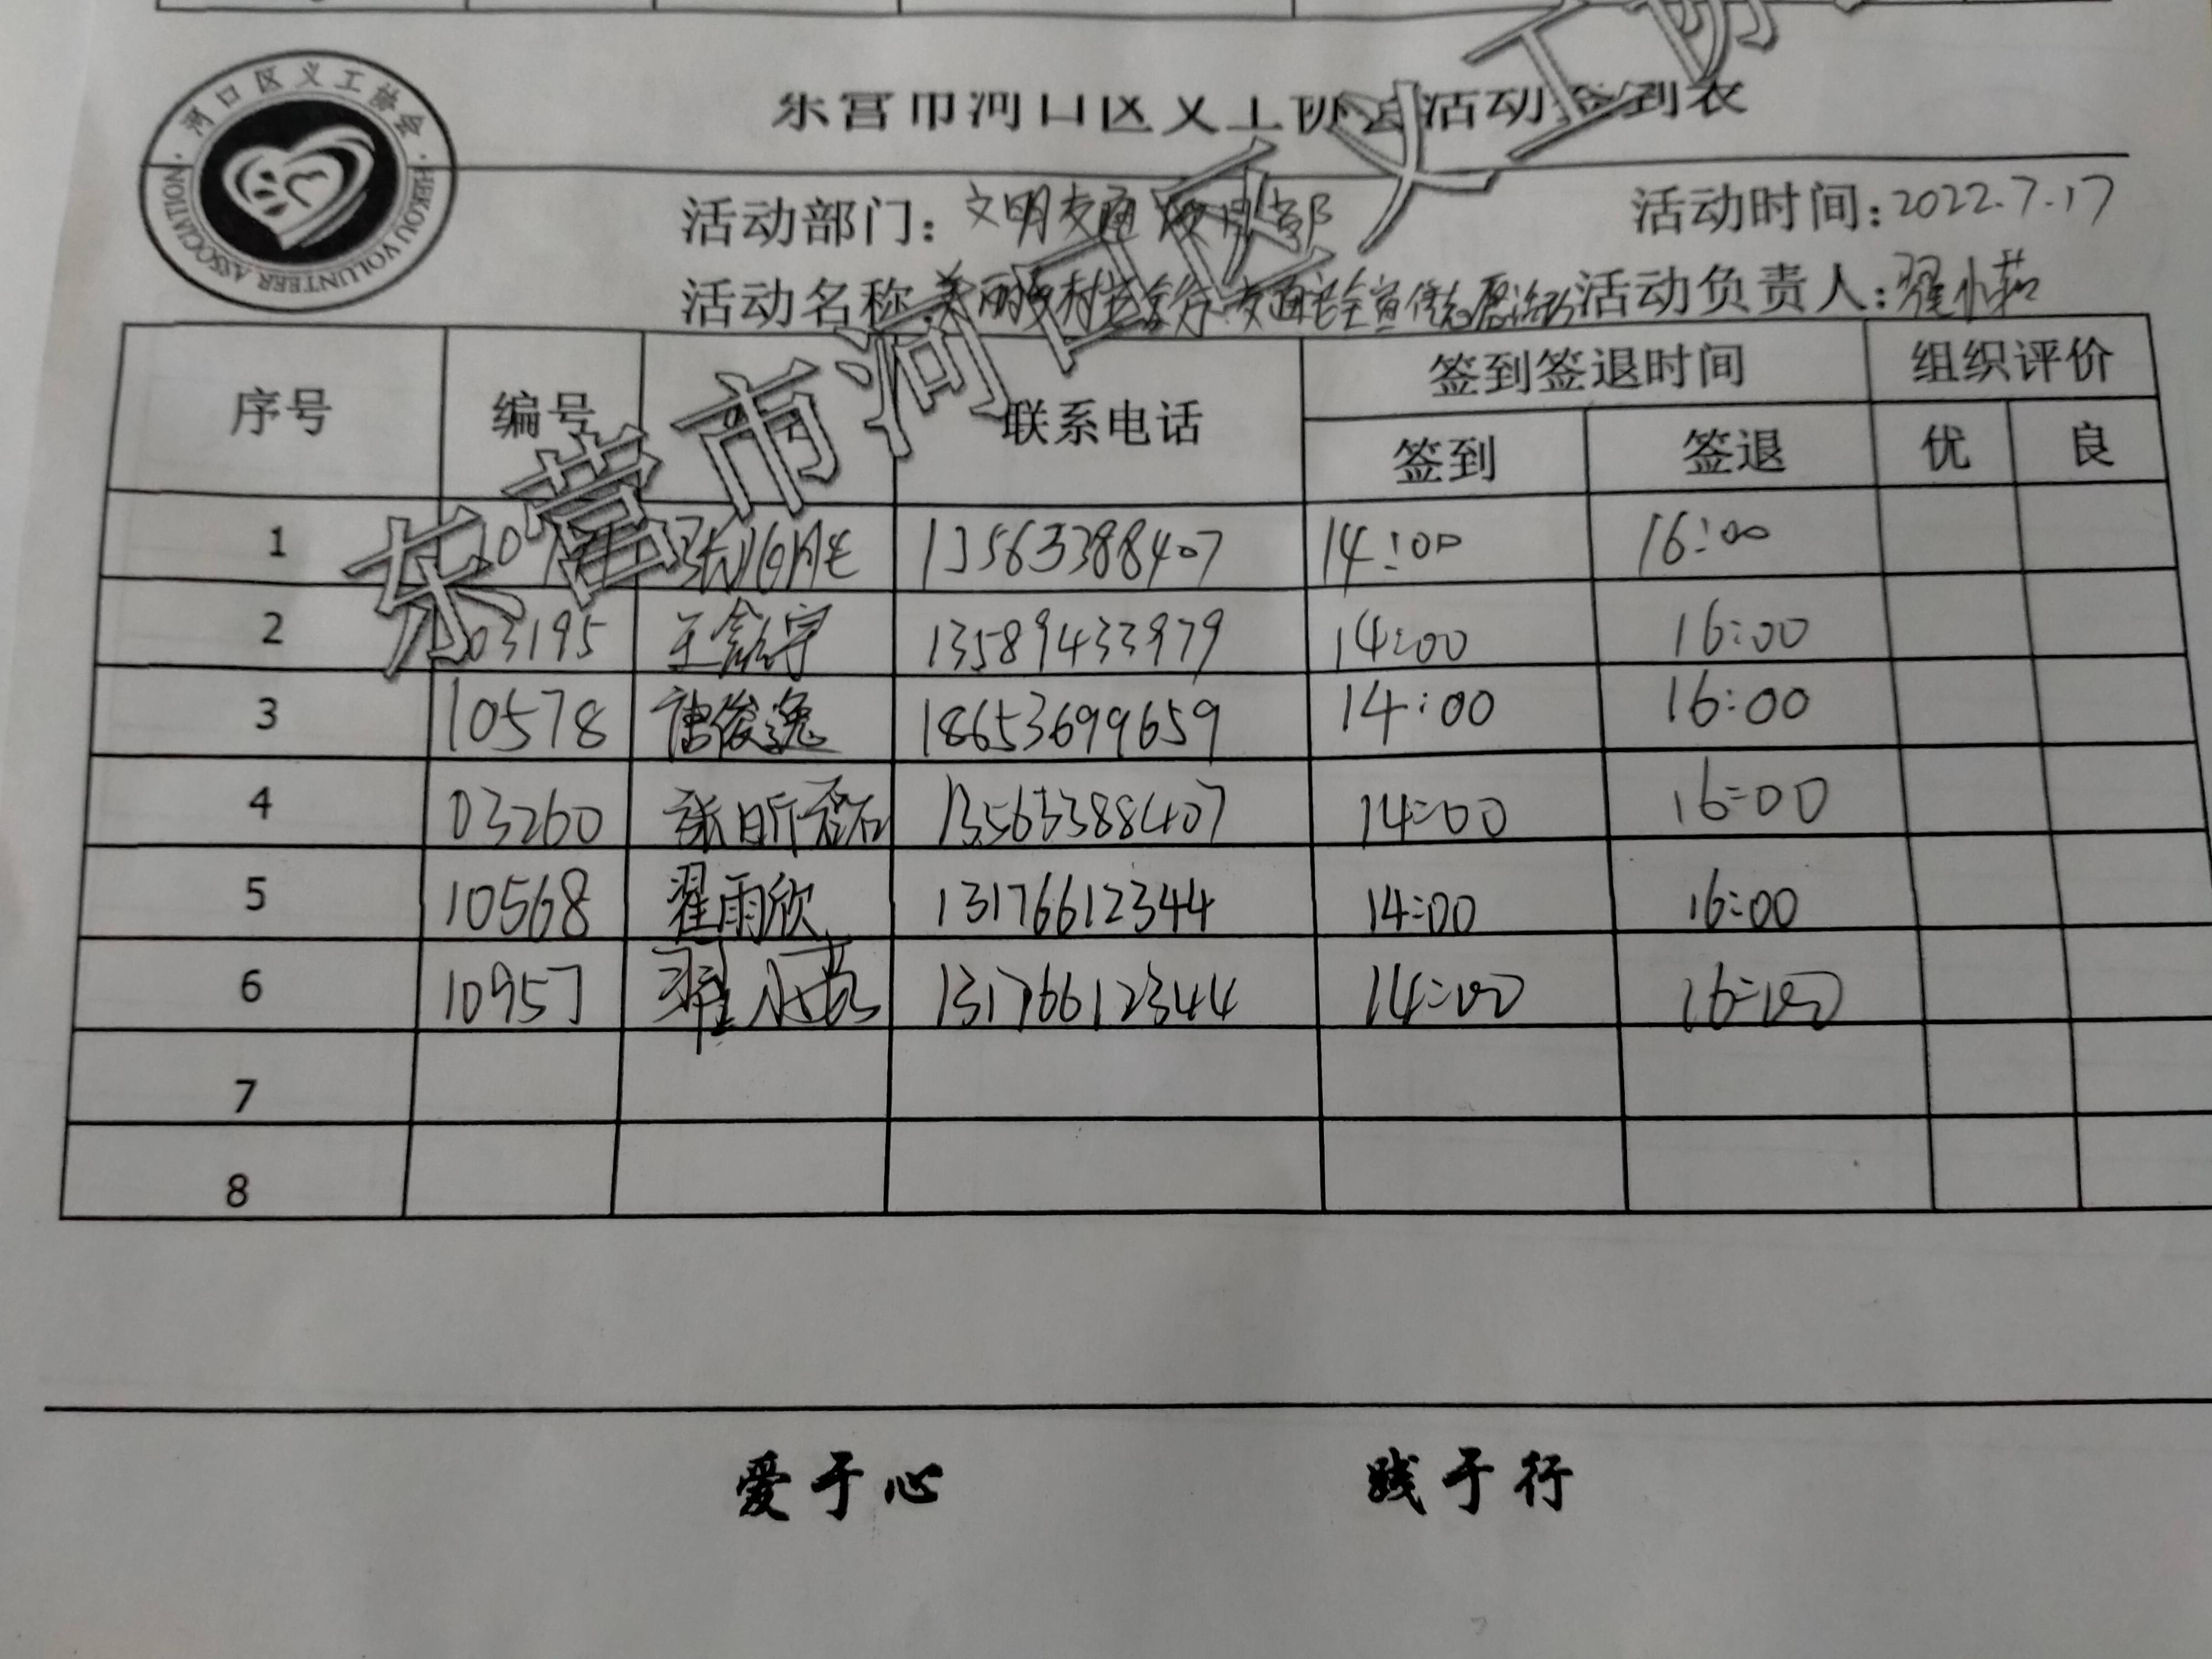 东营市河口区义工协会活动签到表
河口区义工协会
HEKOU VOLUNTEER ASSOCIATION
活动部门：文明交通 部
活动时间：2022.7.17
活动名称：美丽乡村 行 交通安全宣传志愿活动
活动负责人：翟小茹
序号 编号 联系电话 签到签退时间 组织评价
签到 签退 优 良
1 13563388407 14:00 16:00
2 03195 王鑫宇 13589433979 14:00 16:00
3 10578 唐俊逸 18653699659 14:00 16:00
4 03260 张昕磊 13563388407 14:00 16:00
5 10568 翟雨欣 13176612344 14:00 16:00
6 10957 翟小茹 13176612344 14:00 16:00
7
8
东营市河口区义工协
爱于心 践于行